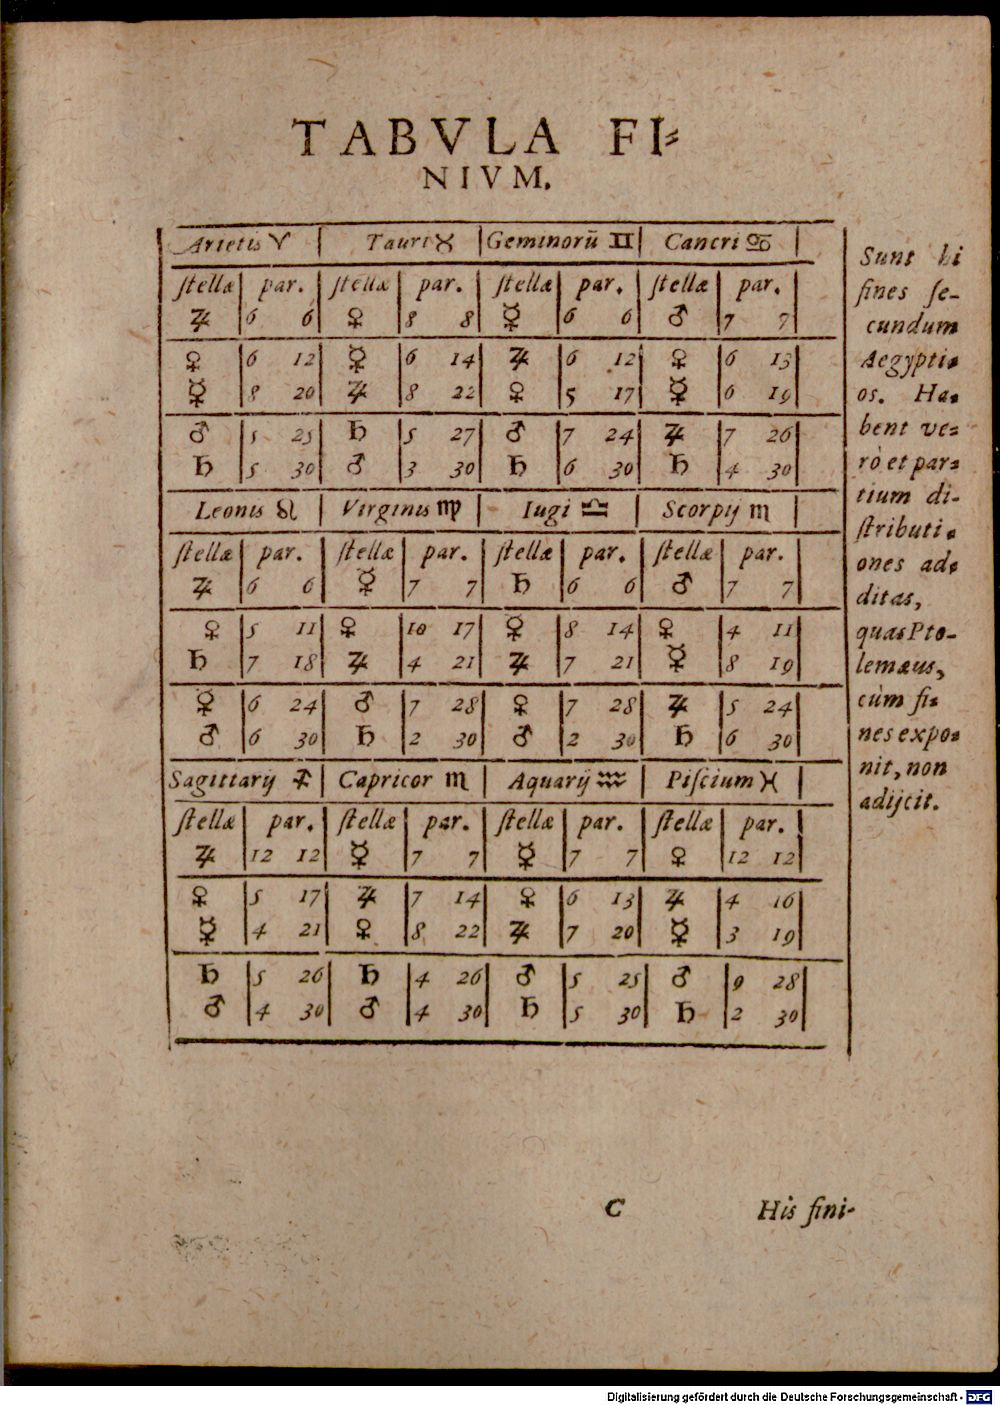 TABVLA FI⸗
NIVM.
Arietis ♈ Tauri ♉ Geminorū ♊ Cancri ♋
ſtellæ par. ſtellæ par. ſtellæ par. ſtellæ par.
♃ 6 6 ♀ 8 8 ☿ 6 6 ♂ 7 7
♀ 6 12 ☿ 6 14 ♃ 6 12 ♀ 6 13
☿ 8 20 ♃ 8 22 ♀ 5 17 ☿ 6 19
♂ 5 25 ♄ 5 27 ♂ 7 24 ♃ 7 26
♄ 5 30 ♂ 3 30 ♄ 6 30 ♄ 4 30
Leonis ♌ Virginis ♍ Iugi ♎ Scorpij ♏
ſtellæ par. ſtellæ par. ſtellæ par. ſtellæ par.
♃ 6 6 ☿ 7 7 ♄ 6 6 ♂ 7 7
♀ 5 11 ♀ 10 17 ☿ 8 14 ♀ 4 11
♄ 7 18 ♃ 4 21 ♃ 7 21 ☿ 8 19
☿ 6 24 ♂ 7 28 ♀ 7 28 ♃ 5 24
♂ 6 30 ♄ 2 30 ♂ 2 30 ♄ 6 30
Sagittarij ♐ Capricor ♏ Aquarij ♒ Piſcium ♓
ſtellæ par. ſtellæ par. ſtellæ par. ſtellæ par.
♃ 12 12 ☿ 7 7 ☿ 7 7 ♀ 12 12
♀ 5 17 ♃ 7 14 ♀ 6 13 ♃ 4 16
☿ 4 21 ♀ 8 22 ♃ 7 20 ☿ 3 19
♄ 5 26 ♄ 4 26 ♂ 5 25 ♂ 9 28
♂ 4 30 ♂ 4 30 ♄ 5 30 ♄ 2 30
Sunt hi
fines ſe-
cundum
Aegypti⸗
os. Ha⸗
bent ve⸗
rò et par⸗
tium di-
ſtributi⸗
ones ad⸗
ditas,
quas Pto-
lemæus,
cùm fi⸗
nes expo⸗
nit, non
adijcit.
C His fini-
Digitalisierung gefördert durch die Deutsche Forschungsgemeinschaft - DFG